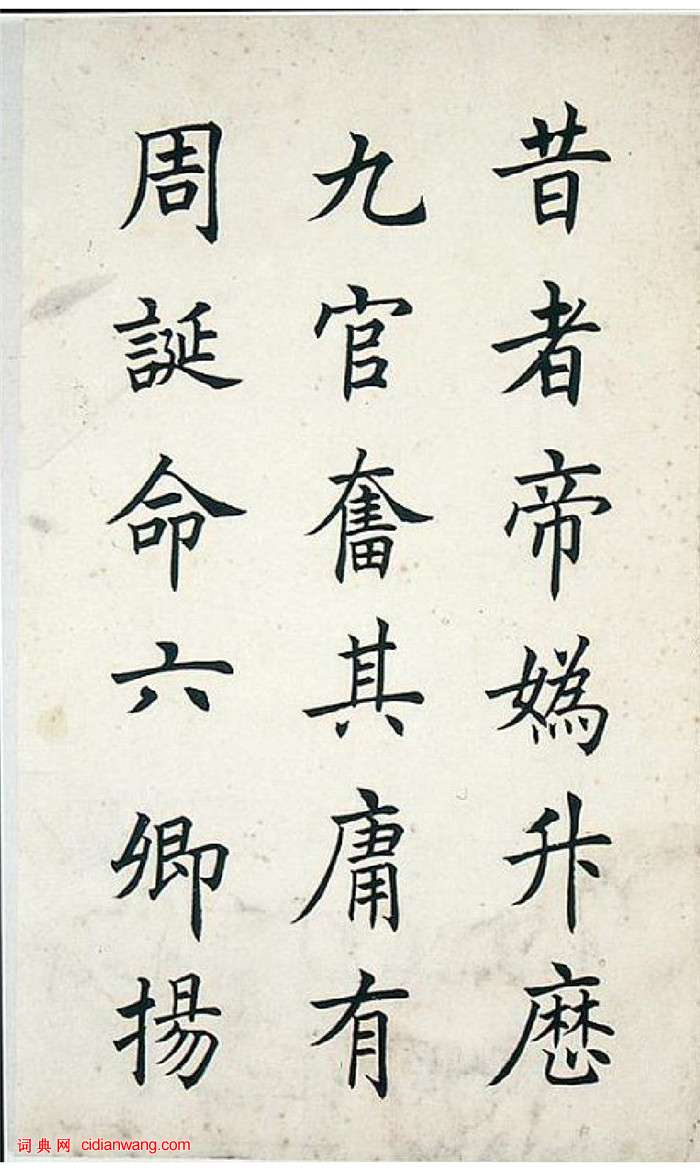 昔者帝媯升歷
九官奮其庸有
周誕命六卿揚
词典网 cidianwang.com